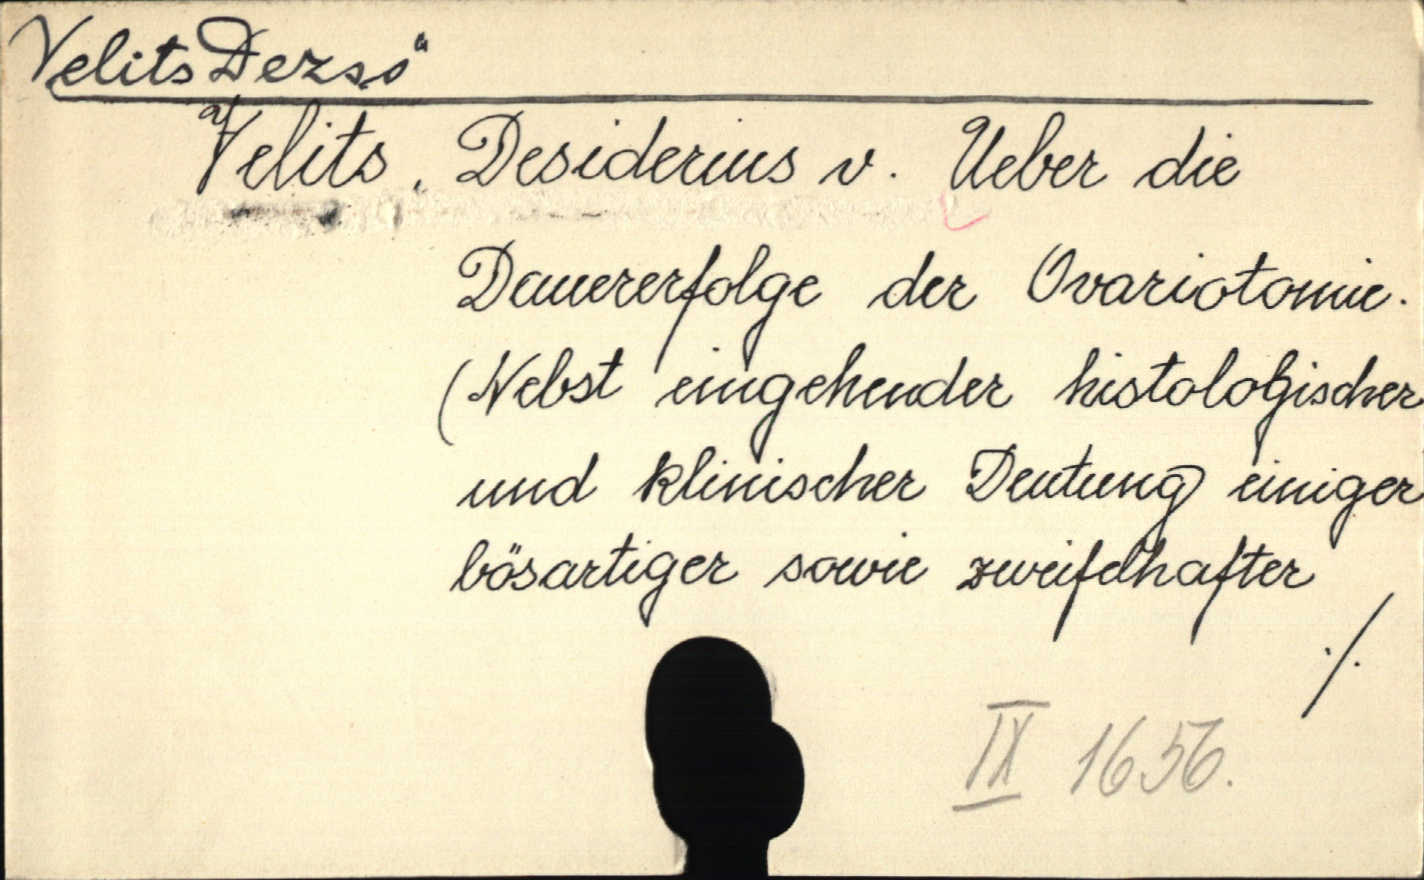 Velits Dezső
Velits, Desiderius v. Ueber die
Dauererfolge der Ovariotomie.
(Nebst eingehender histologischer
und klinischer Deutung einiger
bösartiger sowie zweifelhafter
./.
IX 1656.